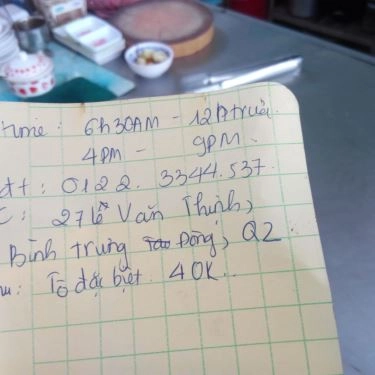 time: 6h30AM - 12h trưa.
4PM - 9PM.
đt: 0122. 3344.537.
C: 27 Lê Văn Thịnh,
Bình trưng Đông, Q2.
Tô đặc biệt. 40K..